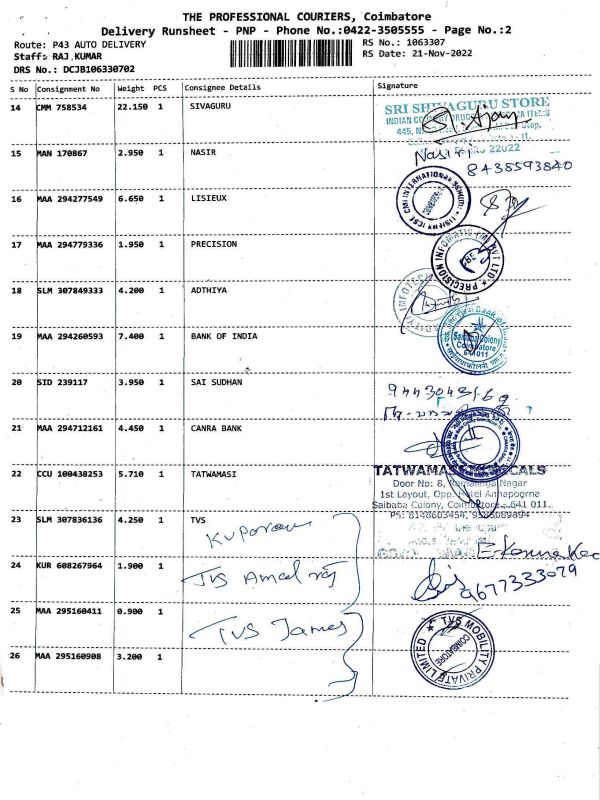 THE PROFESSIONAL COURIERS, Coimbatore
Delivery Runsheet - PNP - Phone No.:0422-3505555 - Page No.:2
Route: P43 AUTO DELIVERY
RS No.: 1063307
Staff: RAJ KUMAR
RS Date: 21-Nov-2022
DRS No.: DCJB106330702
S No Consignment No Weight PCS Consignee Details Signature
14 CMM 758534 22.150 1 SIVAGURU
SRI SHIVAGURU STORE
15 MAN 170867 2.950 1 NASIR
8438593840
16 MAA 294277549 6.650 1 LISIEUX
17 MAA 294779336 1.950 1 PRECISION
18 SLM 307849333 4.200 1 ADTHIYA
19 MAA 294260593 7.400 1 BANK OF INDIA
Saibaba Colony
Coimbatore
641 011
20 SID 239117 3.950 1 SAI SUDHAN
21 MAA 294712161 4.450 1 CANRA BANK
22 CCU 100438253 5.710 1 TATWAMASI
Door No: 8,
1st Layout, Opp. Hotel Annapoorna
Saibaba Colony, Coimbatore - 641 011.
23 SLM 307836136 4.250 1 TVS
24 KUR 608267964 1.900 1
TVS Amal raj
9677333079
25 MAA 295160411 0.900 1
TVS James
TVS MOBILITY PRIVATE LIMITED
COIMBATORE
26 MAA 295160908 3.200 1